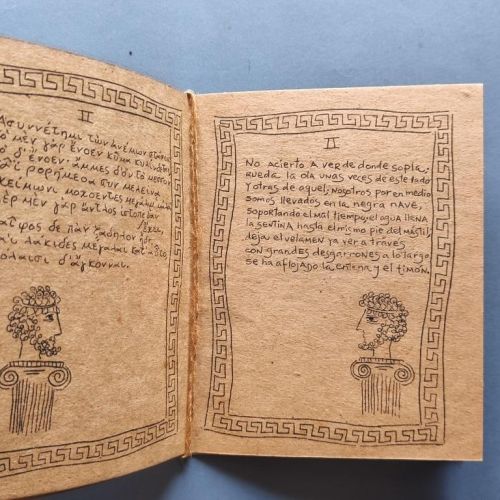 II
Ασυννέτημι τῶν ἀνέμων
μὲν γὰρ ἔνθεν κῦμα
ἔνθεν, ἄμμες δ' ὂν τὸ μεσσον
φορήμεθα συν μελαινα
χείμωνι μοχθεντες μεγαλω μαλα
περ μὲν γὰρ ἄντλος ἰστοπεδαν
έχει,
δὲ πὰν ζαδηλον ἤδη
λακιδες μεγαλαι κατ αυτο
χολαισι δ' ἄγκονναι.
II
No acierto a ver de donde sopla;
Rueda la ola unas veces de este lado
y otras de aquel; nosotros por en medio
somos llevados en la negra nave,
soportando el mal tiempo, el agua llena
la sentina hasta el mismo pie del mástil,
deja el velamen ya ver a través
con grandes desgarrones a lo largo,
se ha aflojado la entena y el timón.